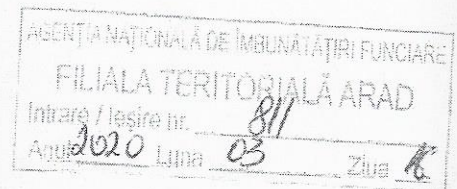 AGENȚIA NAȚIONALĂ DE ÎMBUNĂTĂȚIRI FUNCIARE
FILIALA TERITORIALĂ ARAD
Intrare / Ieșire nr. 811
Anul 2020 Luna 03 Ziua